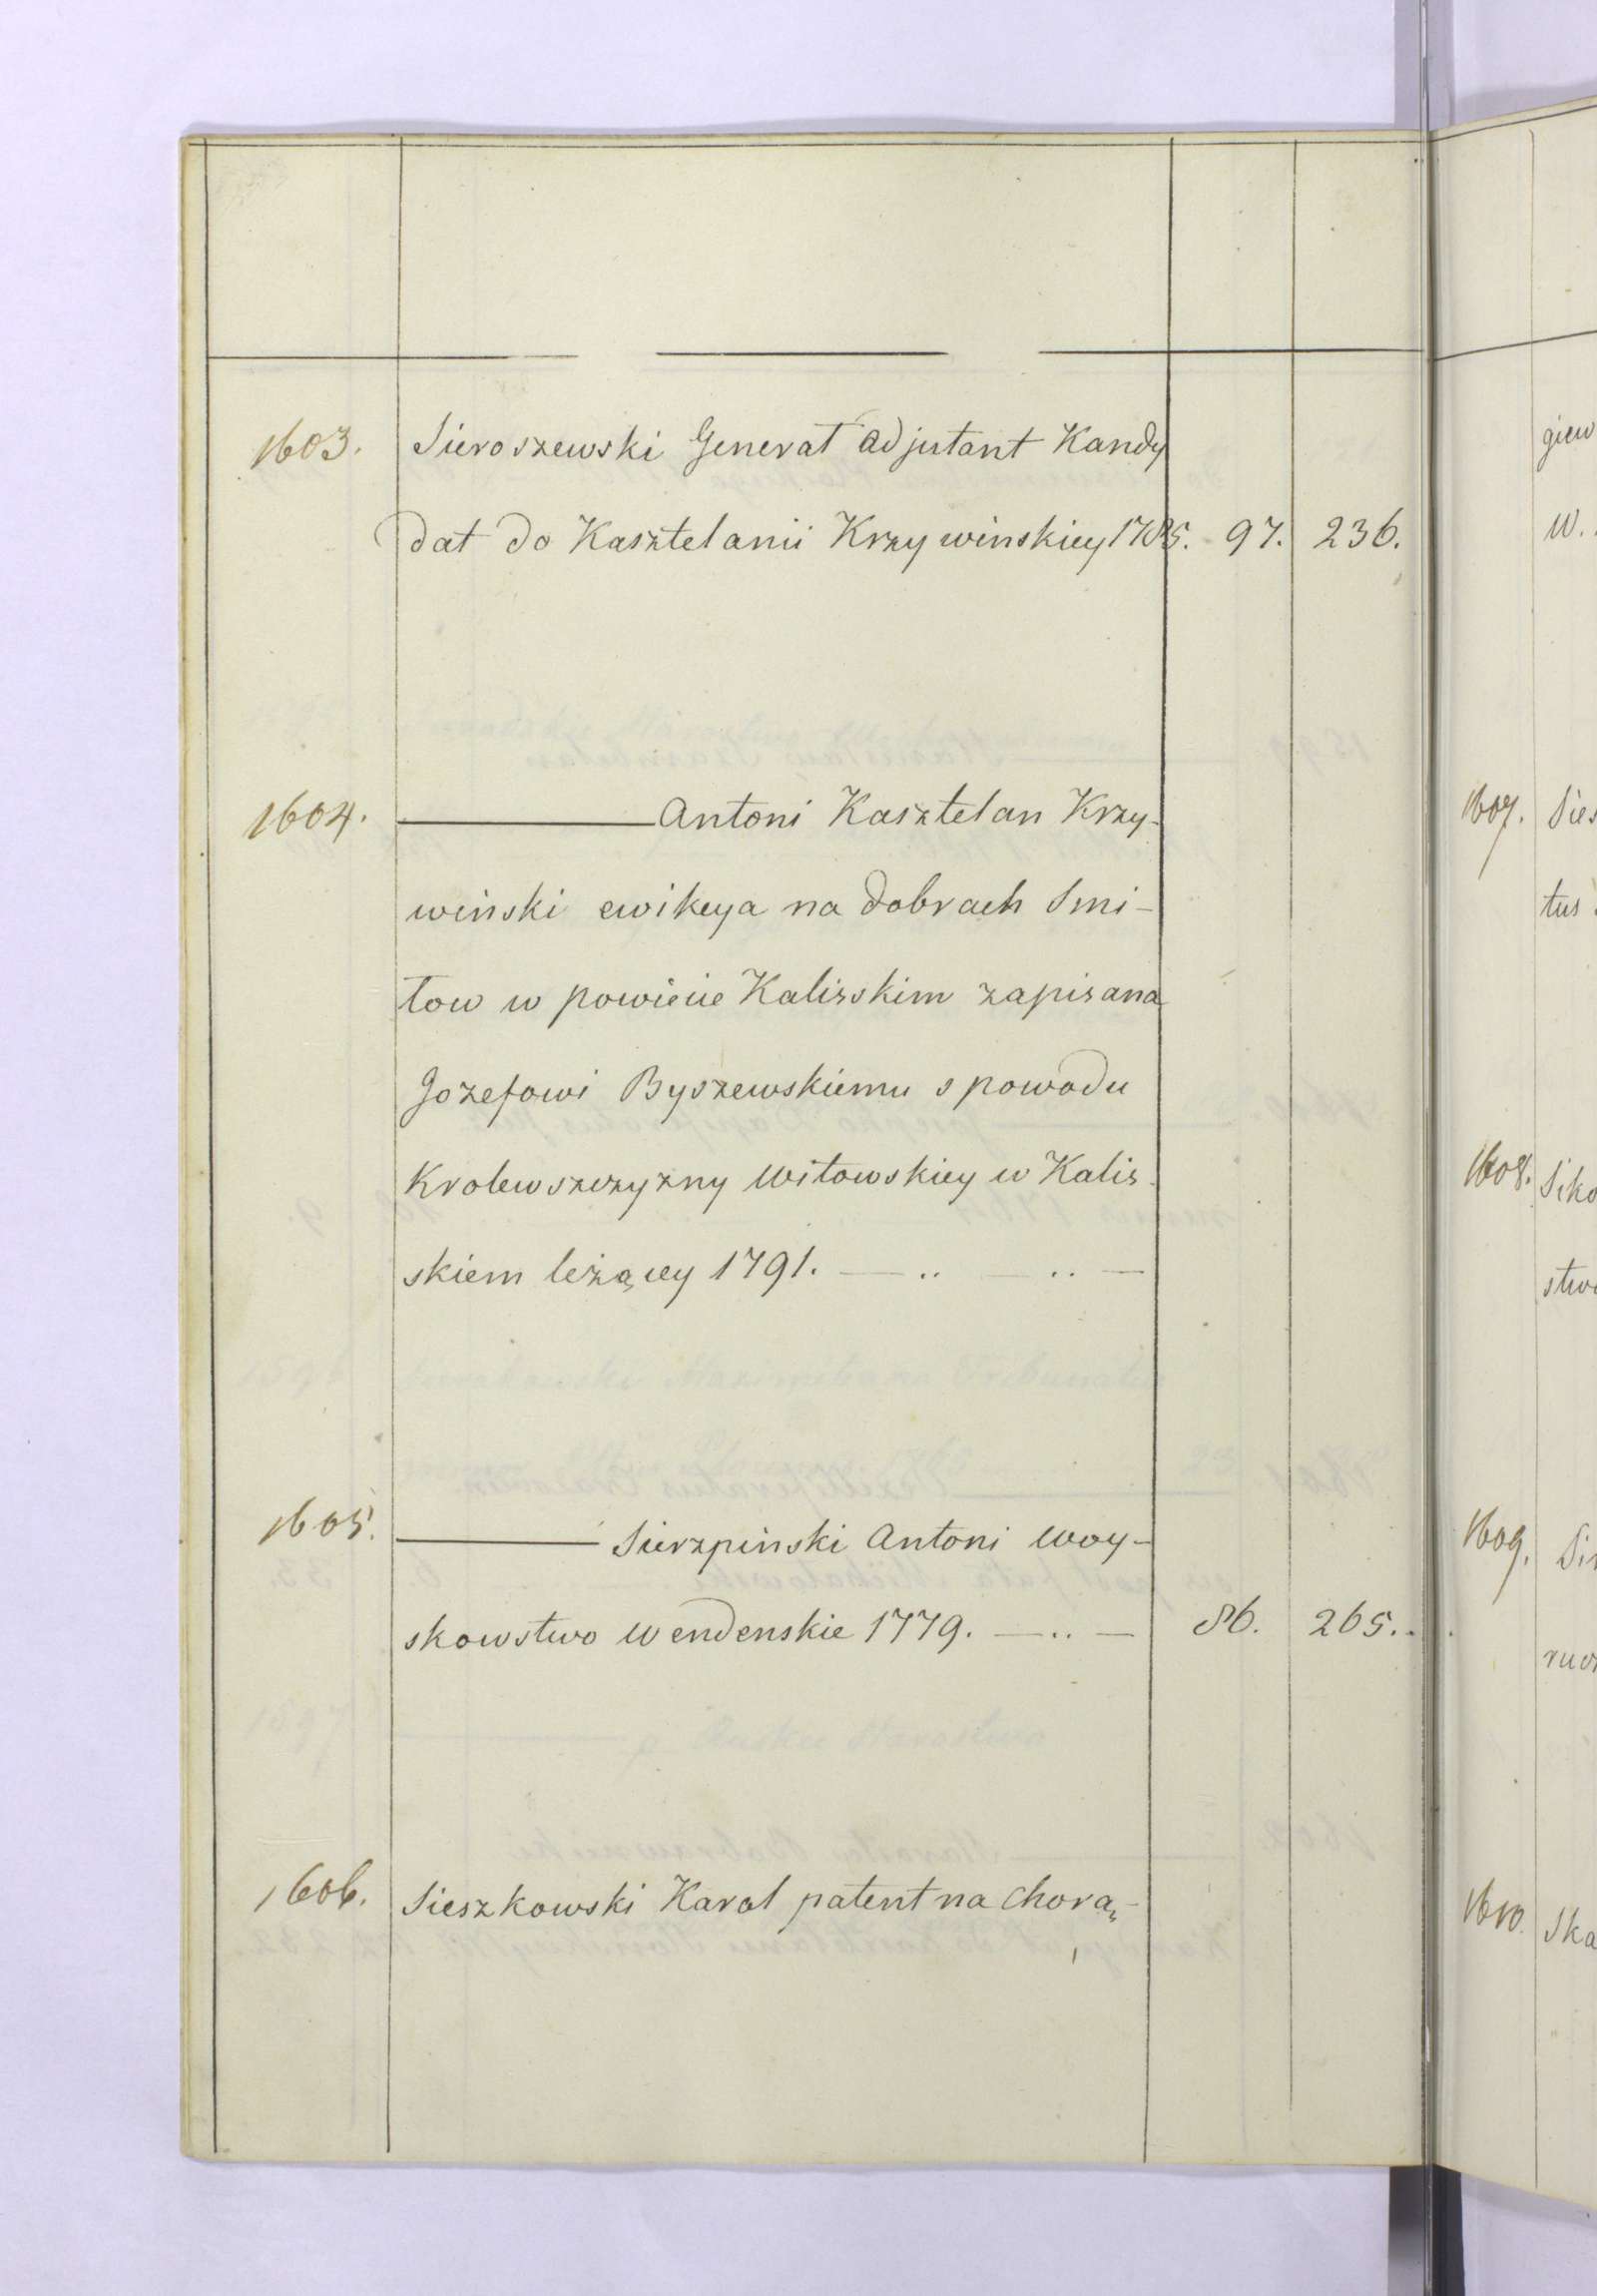 1603. Sieroszewski Generał Adjutant Kandy
dat do Kasztelanii Krzywinskiey 1785. 97. 236.
1604. ——— Antoni Kasztelan Krzy-
winski ewikcya na dobrach Smi-
łow w powiecie Kaliskim zapisana
Jozefowi Byszewskiemu s powodu
Krolewszczyzny Witowskiey w Kalis-
skiem leżącey 1791. — .. — .. —
1605. ——— Sierzpinski Antoni Woy-
skowstwo Wendenskie 1779. — .. — 86. 265.
1606. Sieszkowski Karol patent na Chorą-
giew
W.
1607. Sies
tus
1608. Siko
stwo
1609.
1610. Ska